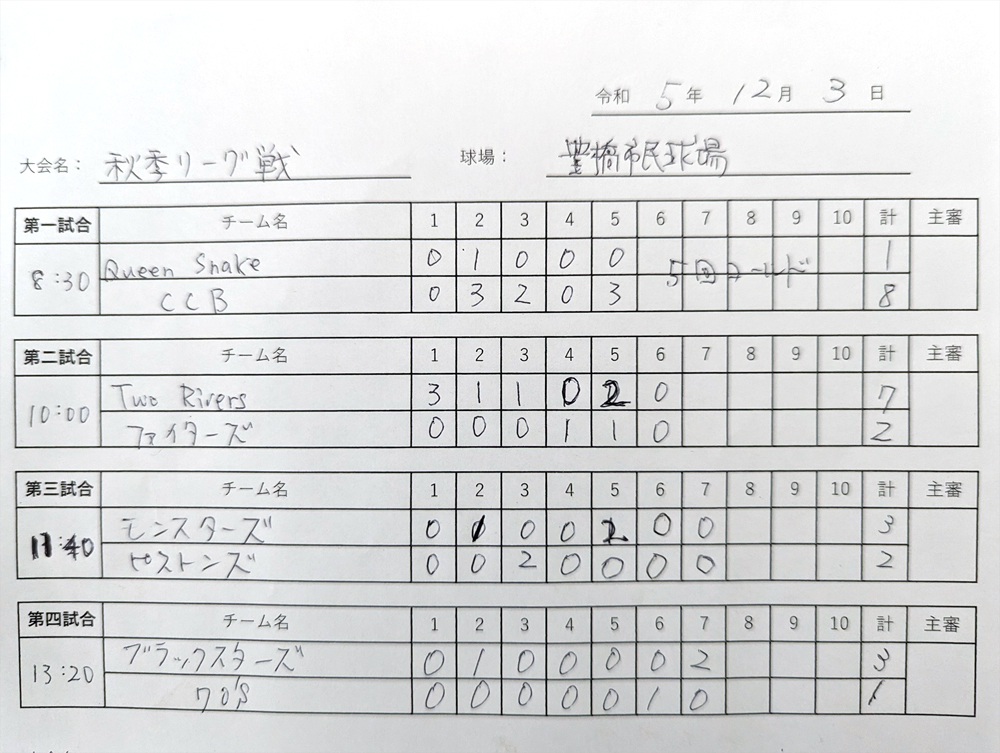 令和 5年 12月 3日
大会名： 秋季リーグ戦 球場： 豊橋市民球場
第一試合 チーム名 1 2 3 4 5 6 7 8 9 10 計 主審
8:30 Queen Snake 0 1 0 0 0 5回コールド 1
CCB 0 3 2 0 3 8
第二試合 チーム名 1 2 3 4 5 6 7 8 9 10 計 主審
10:00 Two Rivers 3 1 1 0 2 0 7
ファイターズ 0 0 0 1 1 0 2
第三試合 チーム名 1 2 3 4 5 6 7 8 9 10 計 主審
11:40 モンスターズ 0 1 0 0 2 0 0 3
ピストンズ 0 0 2 0 0 0 0 2
第四試合 チーム名 1 2 3 4 5 6 7 8 9 10 計 主審
13:20 ブラックスターズ 0 1 0 0 0 0 2 3
70'S 0 0 0 0 0 1 0 1